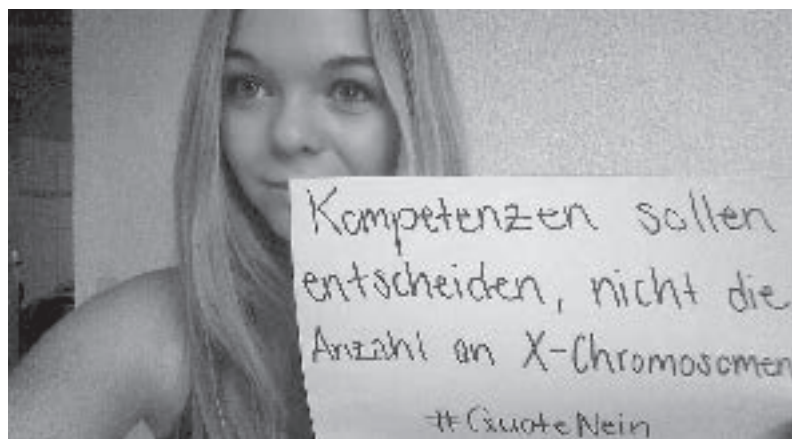 Kompetenzen sollen
entscheiden, nicht die
Anzahl an X-Chromosomen
#QuoteNein